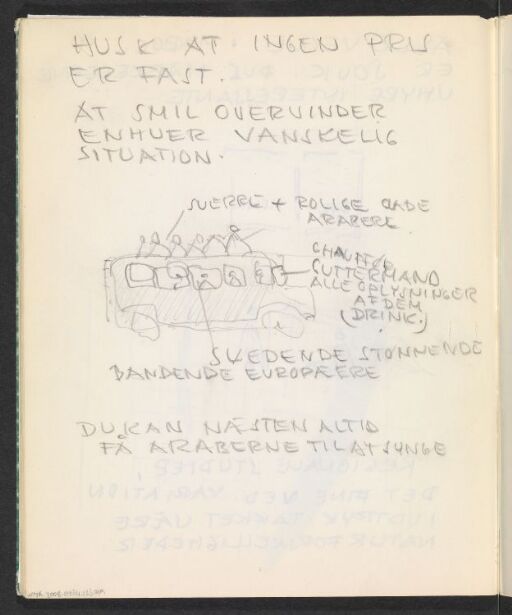 HUSK AT INGEN PRIS
ER FAST.
AT SMIL OVERVINDER
ENHVER VANSKELIG
SITUATION.
SVERRE + ROLIGE GLADE
ARABERE
CHAUFFØR
GUTTERMAND
ALLE OPLYSNINGER
AF DEM
(DRINK.)
SVEDENDE STØNNENDE
BANDENDE EUROPÆERE
DU KAN NÆSTEN ALTID
FÅ ARABERNE TIL AT SYNGE